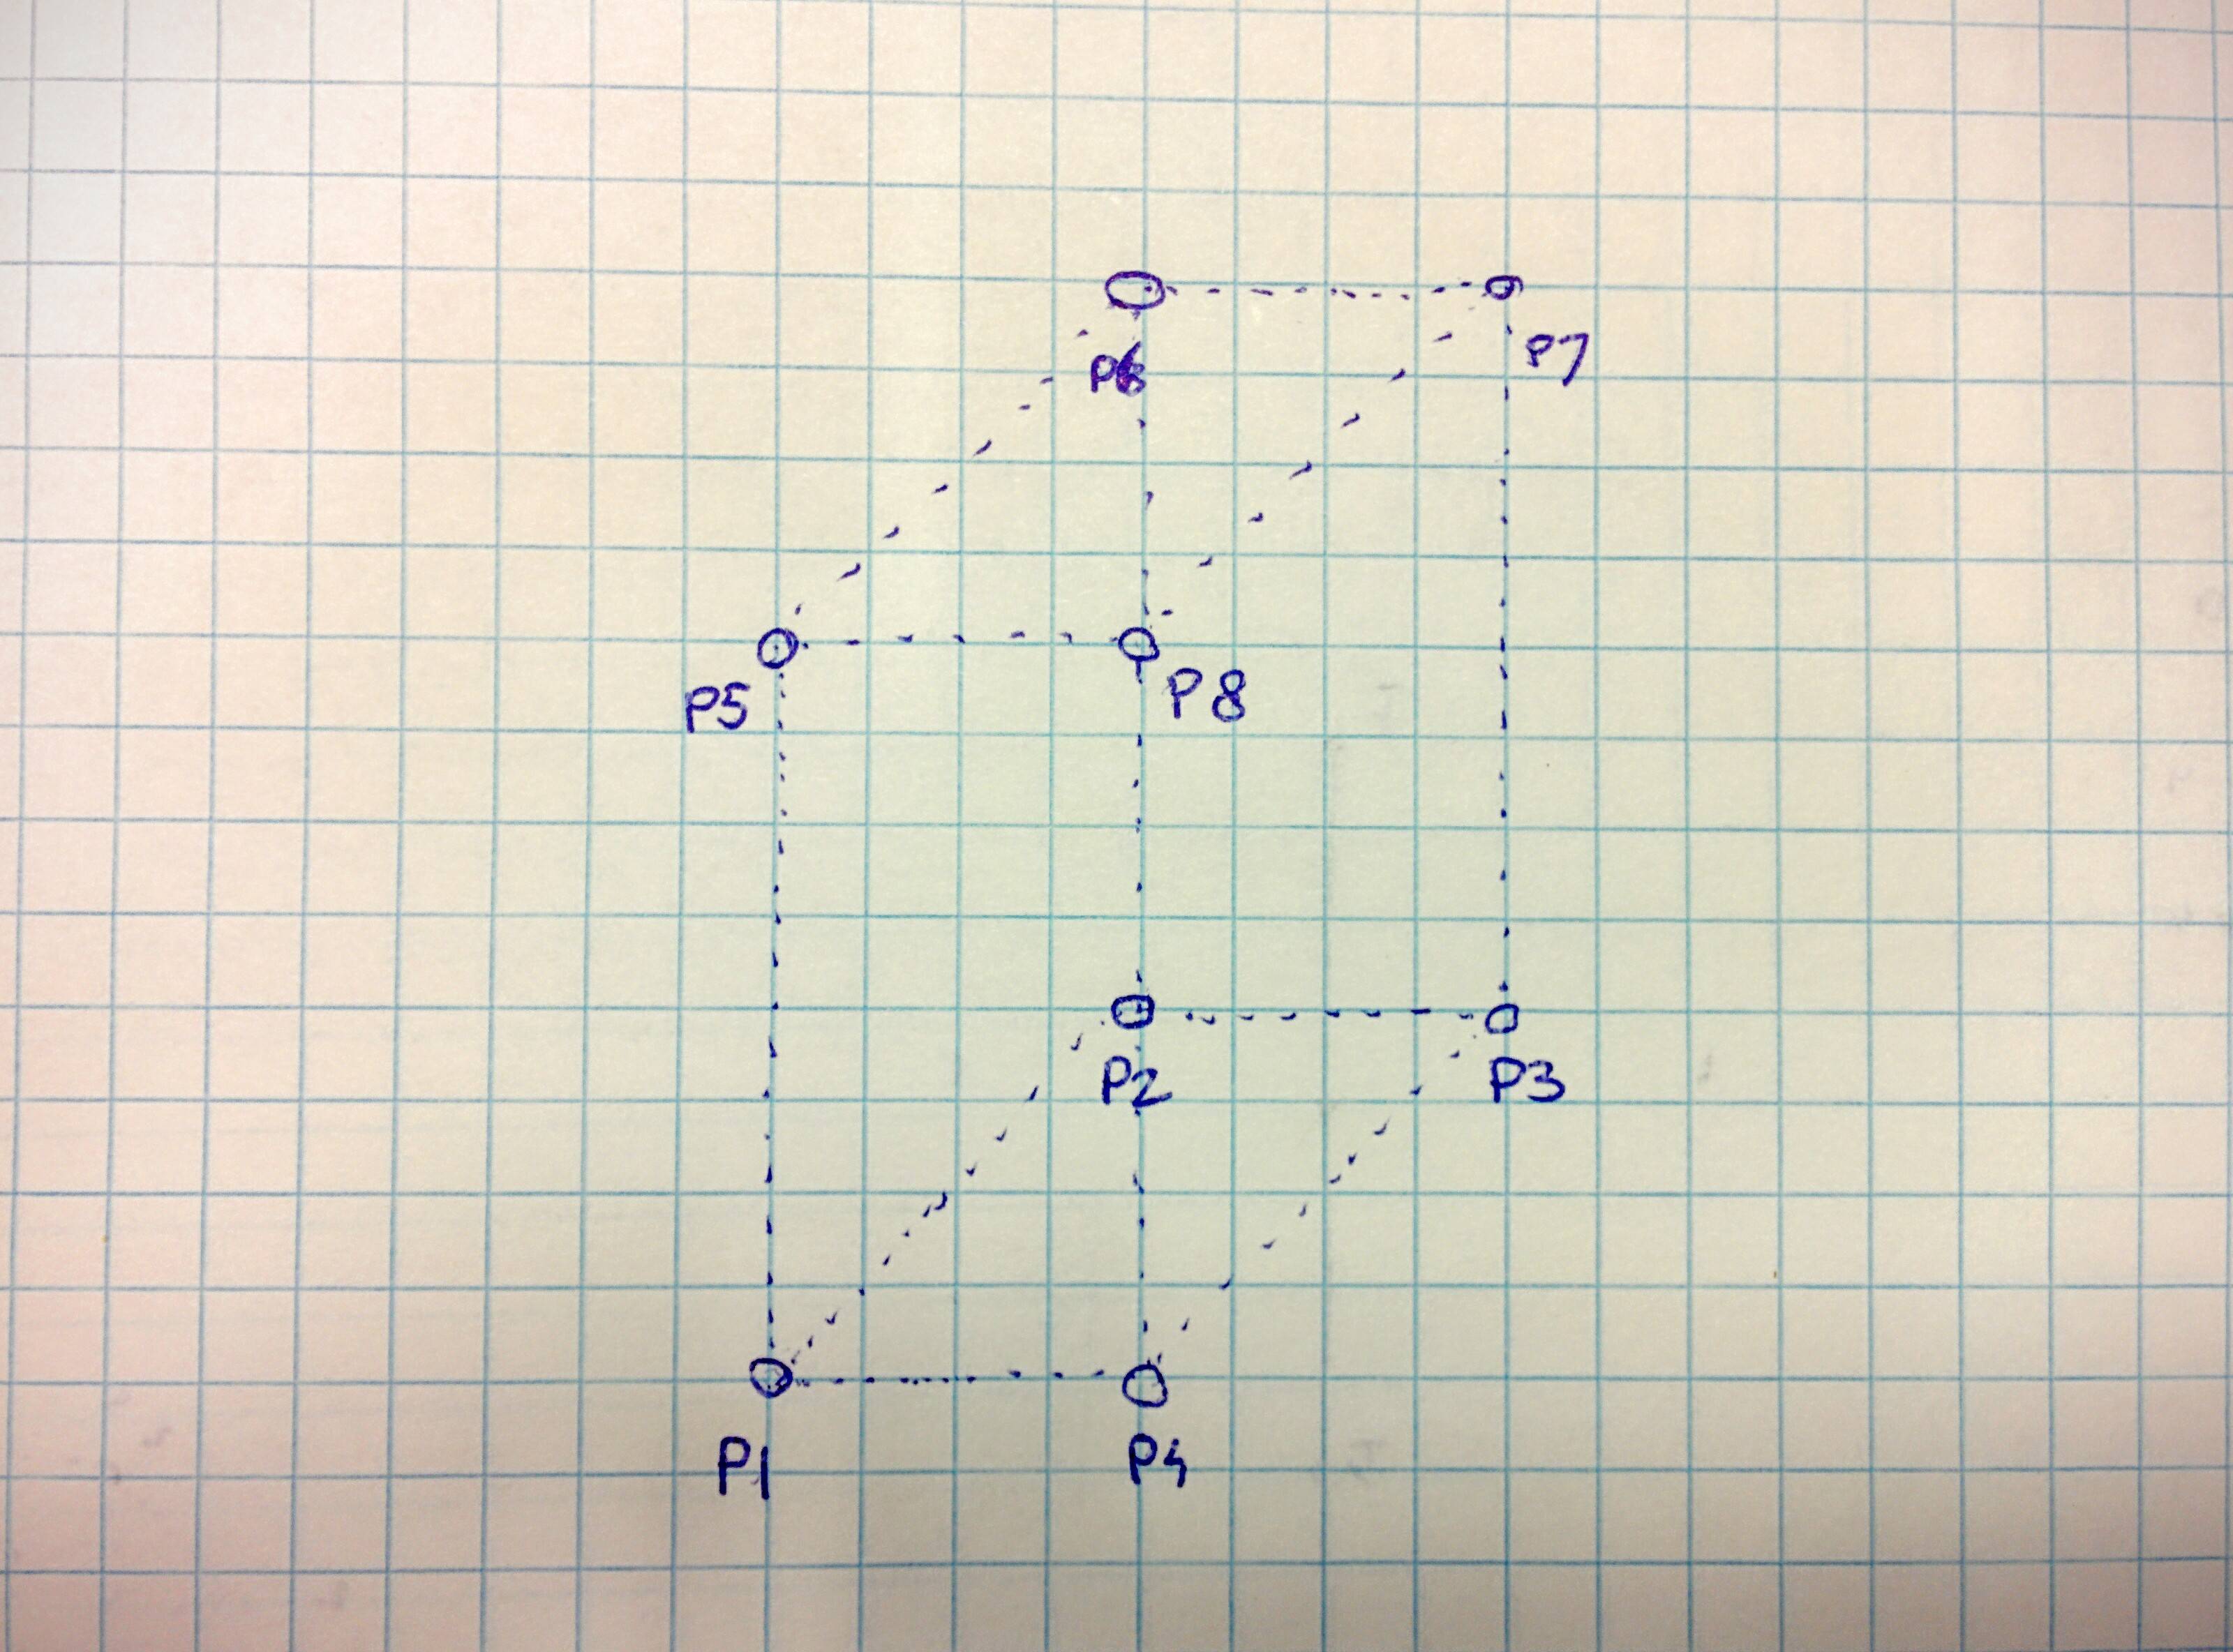 P6
P7
P5
P8
P2
P3
P1
P4